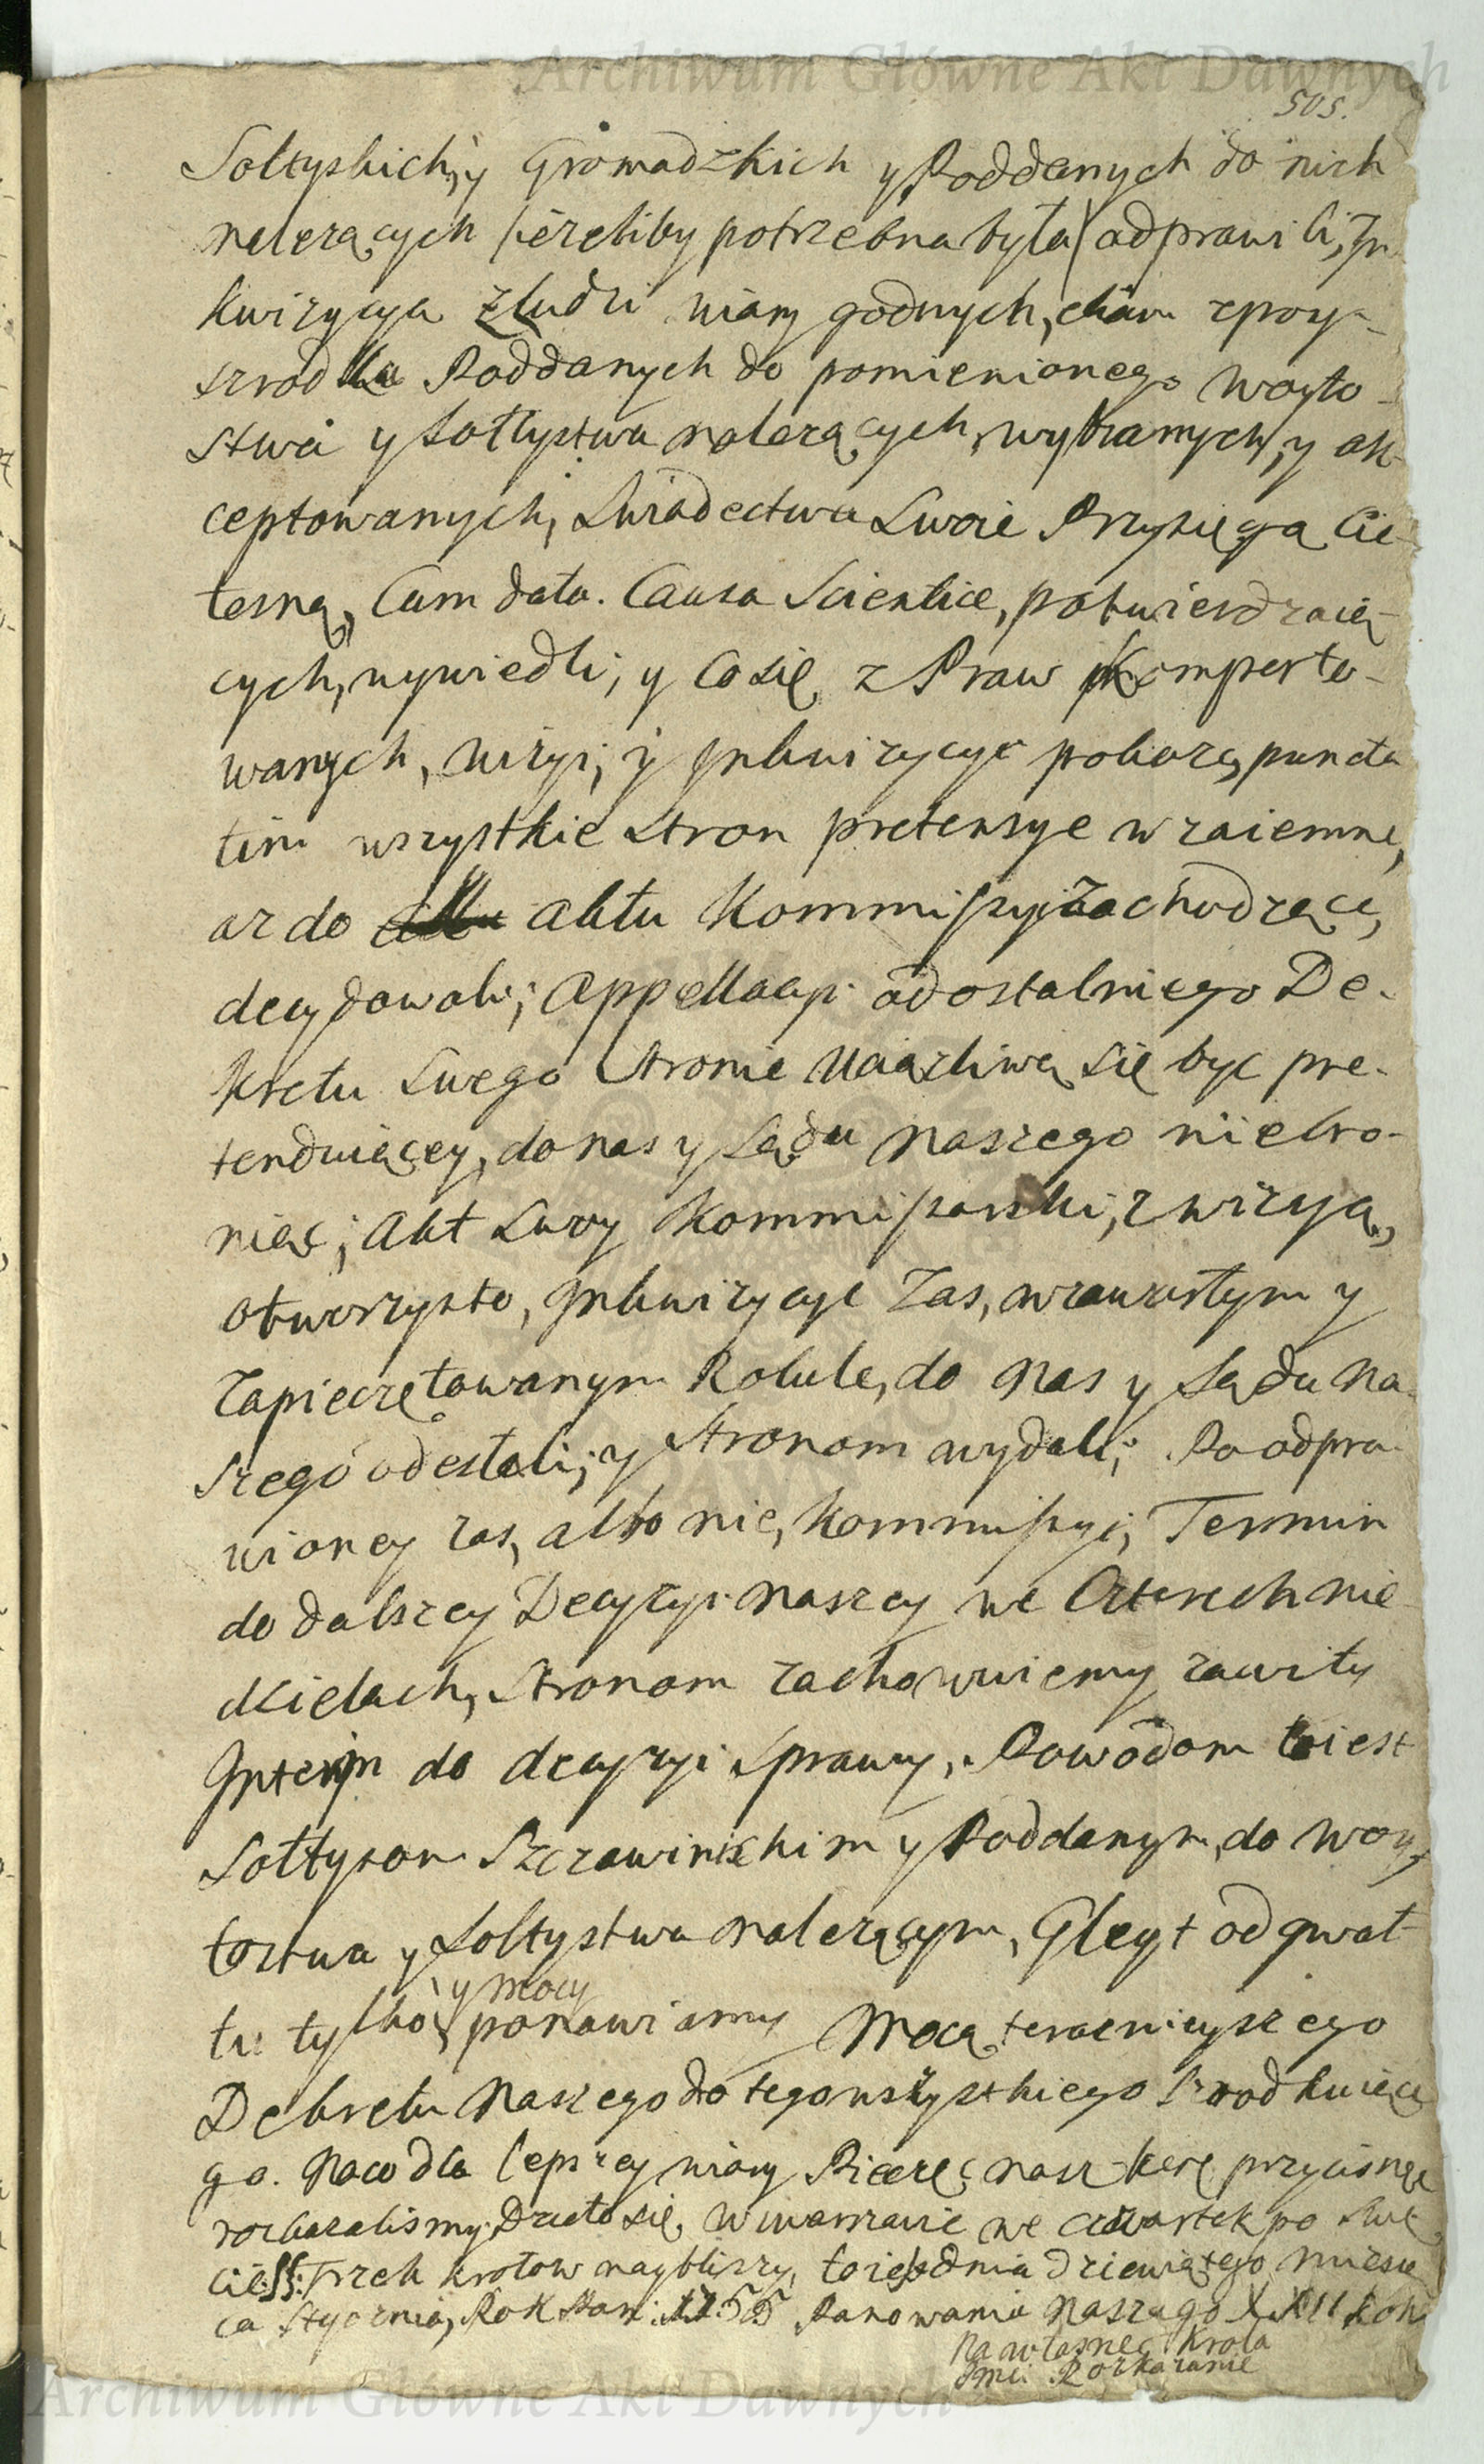 Archiwum Główne Akt Dawnych
505.
Sołtyskich, y Gromadzkich y Poddanych do nich
należących /ieżeliby potrzebna była/ odprawili, In
kwizycyą z Ludzi wiary godnych, etiam zpoy-
szrodku Poddanych do pomienionego woyto-
stwa y Sołtystwa należących, wybranych, y ak-
ceptowanych, Swiadectwa Swoie Przysięgą Cie-
lesną, Cum data. Causa Scientiæ, potwierdzaią-
cych, wywiedli; y Co się z Praw Komporto-
wanych, wizyi, y Inkwizycyi pokaże, puncta
tim wszystkie Stron pretensye wzaiemne,
aż do aktu Kommissyi zachodzące,
decydowali; Appellacyi od ostatniego De-
kretu Swego Stronie Uciążliwą się być pre-
tenduiącey, do nas y Sądu Naszego niebro-
niąc; Akt Swoy Kommissarski, z wizyą,
otworzysto, Inkwizycye Zas, w zawartym y
Zapieczętowanym Rotule, do Nas y Sądu Na
szego odesłali; y Stronom wydali; Po odpra-
wioney zas, albo nie, Kommissyi, Termin
do dalszey Decyzyi Naszey we Czterech nie
dzielach, Stronom zachowuiemy zawity
Interim do decyzyi Sprawy, Powodom to iest
Sołtysom Szczawinskim y Poddanym, do Woy-
tostwa y Sołtystwa należącym, Gleyt od gwał-
tu tylko y mocy ponawiamy Mocą teraznieyszego
Dekretu Naszego do tego wszystkiego Srodkuiące
go. Na co dla lepszey wiary Pieczęć nasz-kę przycisnąć
rozkazalismy. Działo się w Warszawie we czwartek po Swię
cie SS: Trzech Krolow naybliższy, to iest dnia dziewiątego Miesią
ca Stycznia, Rok Pan: 1755 Panowania Naszego XXII Rok
Na własne Krola
Jmci Rozkazanie
Archiwum Główne Akt Dawnych